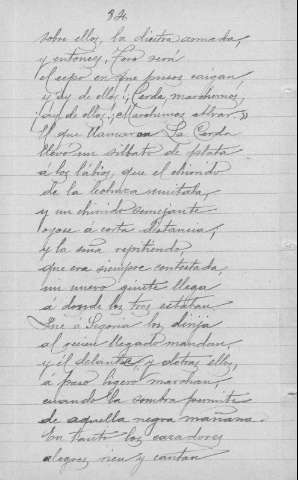 34.
sobre ellos, la diestra armada,
y entonces, Toro será
el cepo en que presos caigan
y ¡ay de ellos! ¡Cerda, marchemos,
¡ay de ellos! ¡Marchemos
El que llamaron La Cerda
llevó un silbato de plata
a los lábios, que el chirrido
de la lechuza imitaba,
y un chirrido semejante
oyose á corta distancia,
y la seña repitiendo,
que era siempre contestada
un nuevo ginete llega
á donde los tres estaban
Que á Segovia los dirija
al recien llegado mandan,
y él delante y detras ellos,
á paso ligero marchan,
cuando la sombra permite
de aquella negra mañana.
En tanto los cazadores
alegres rien y cantan